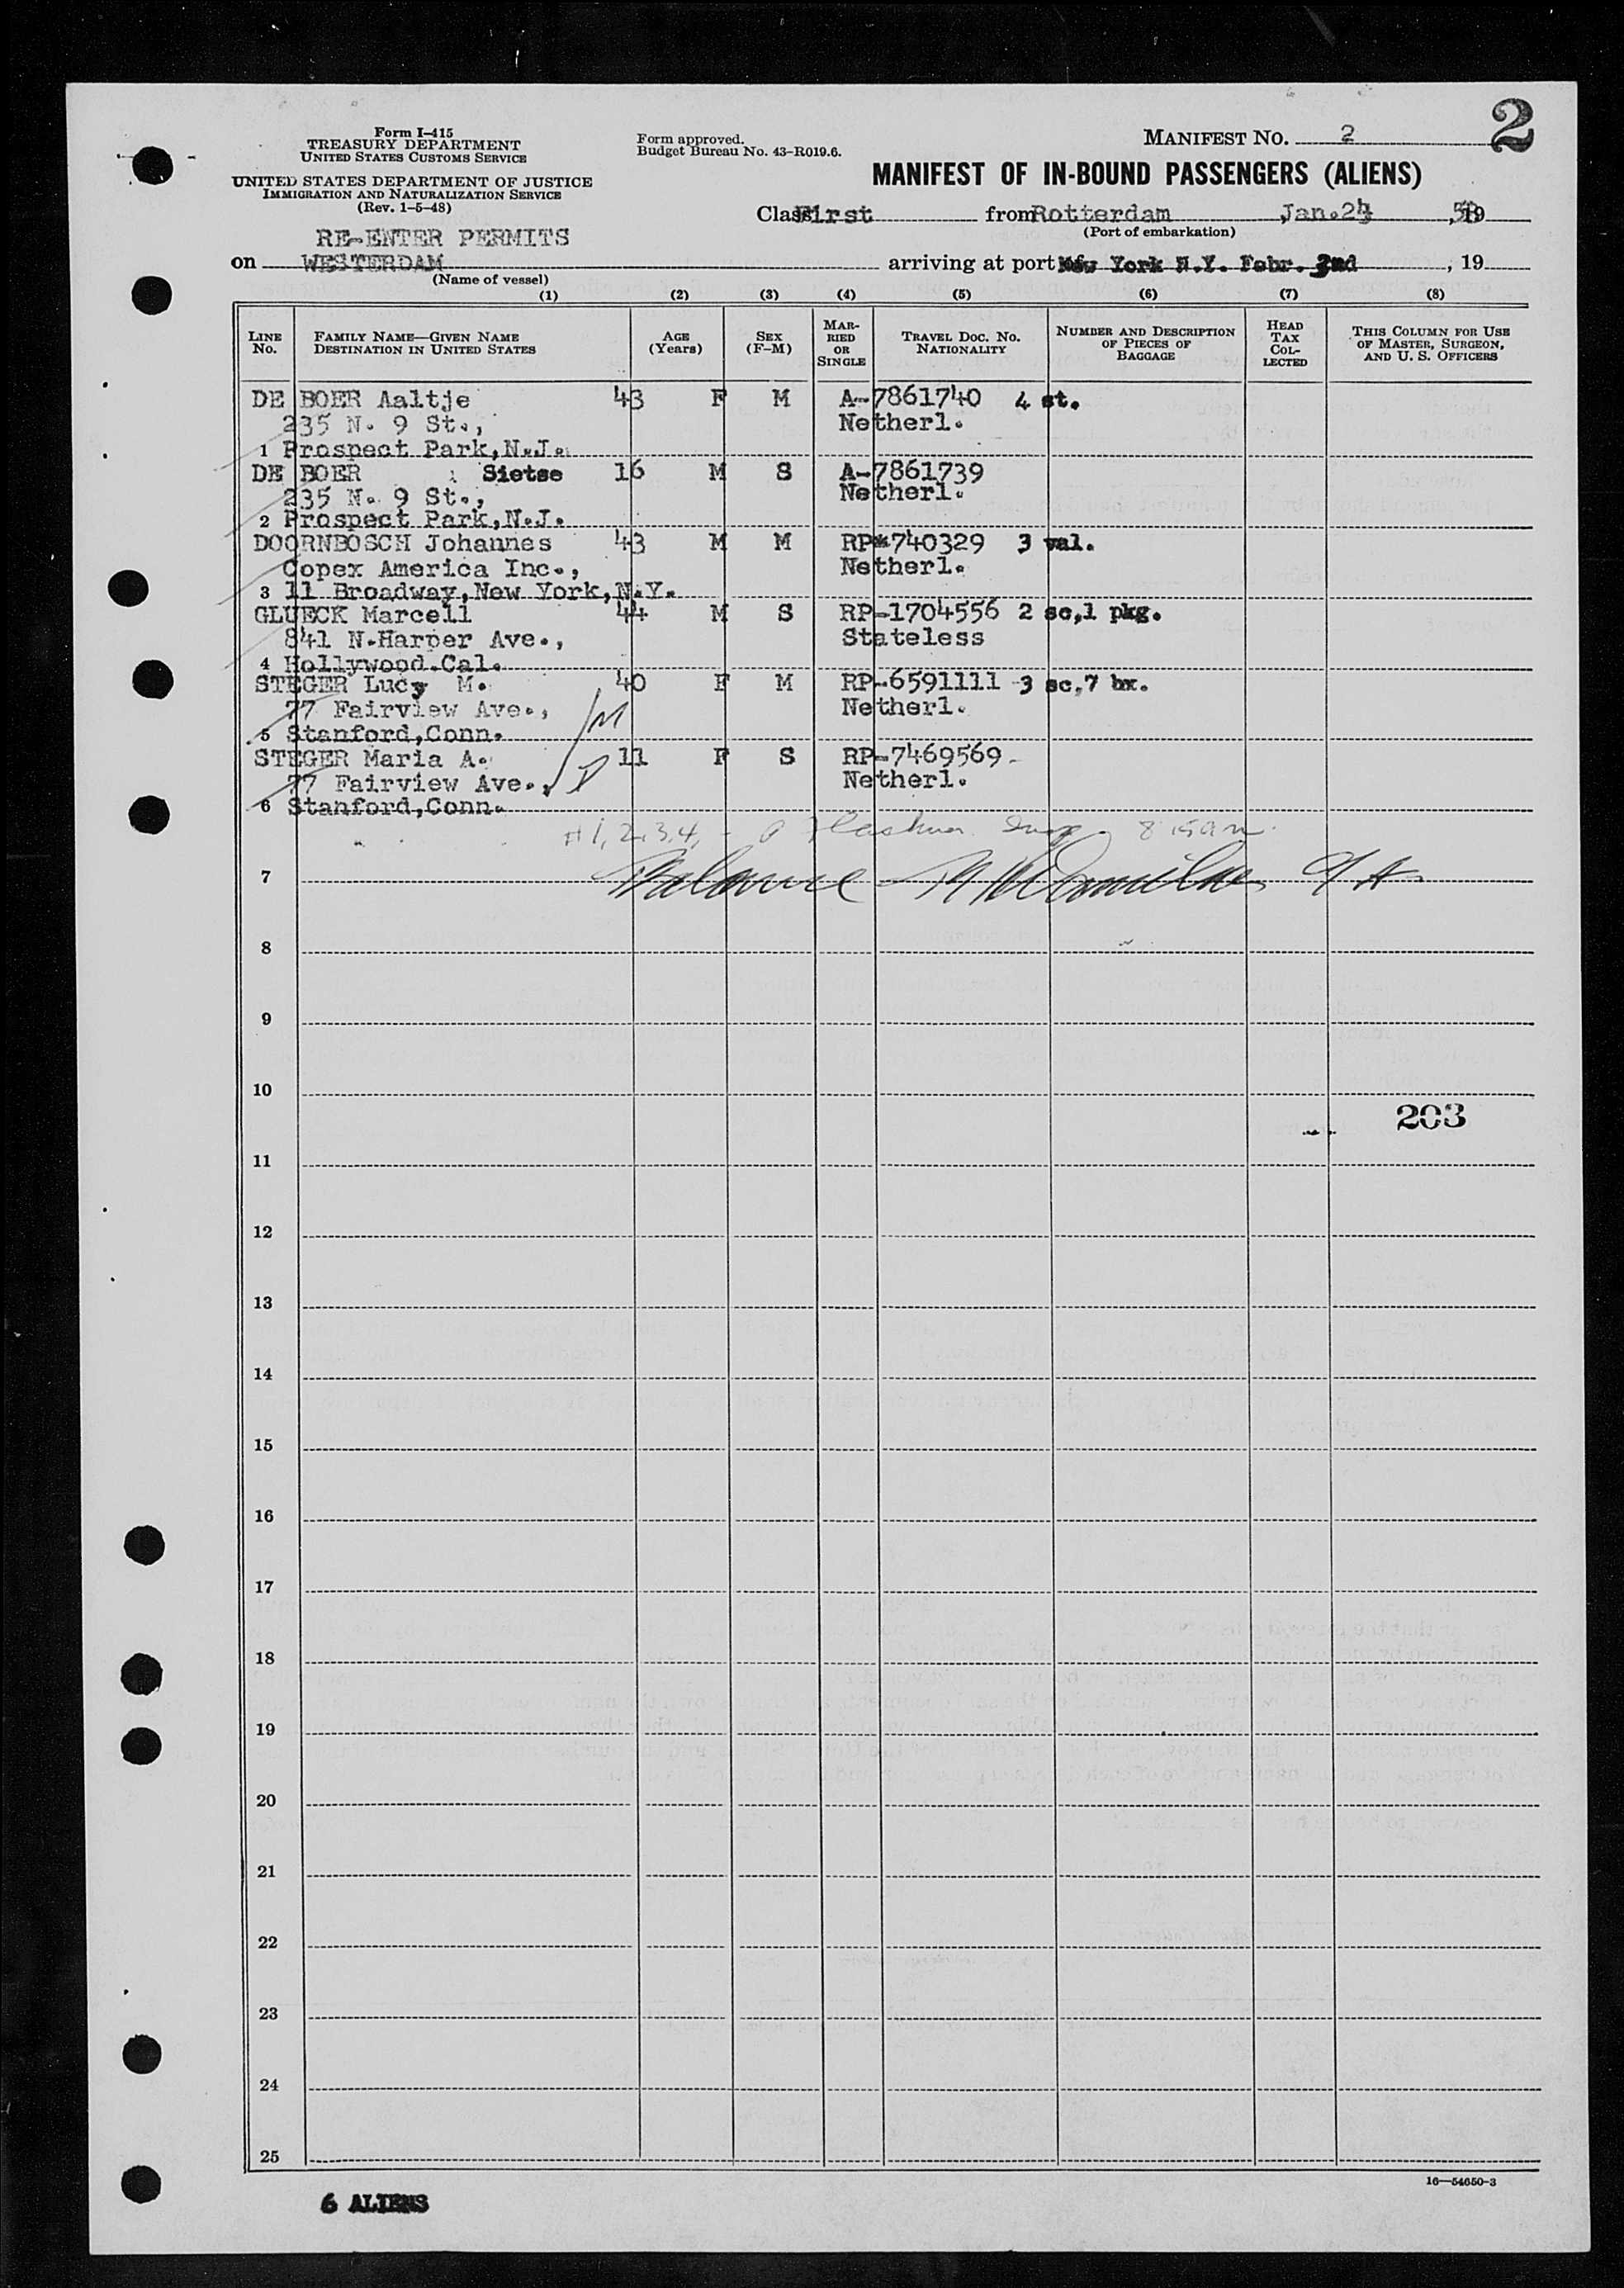 2
Form I-415
TREASURY DEPARTMENT
UNITED STATES CUSTOMS SERVICE
UNITED STATES DEPARTMENT OF JUSTICE
IMMIGRATION AND NATURALIZATION SERVICE
(Rev. 1-5-48)
Form approved.
Budget Bureau No. 43-R019.6.
MANIFEST NO. 2
MANIFEST OF IN-BOUND PASSENGERS (ALIENS)
Class First from Rotterdam Jan. , 19
(Port of embarkation)
RE-ENTER PERMITS
on WESTERDAM arriving at port of New York N.Y. Febr. , 19
(Name of vessel)
(1) (2) (3) (4) (5) (6) (7) (8)
LINE No. FAMILY NAME—GIVEN NAME DESTINATION IN UNITED STATES AGE (Years) SEX (F-M) MARRIED OR SINGLE TRAVEL DOC. NO. NATIONALITY NUMBER AND DESCRIPTION OF PIECES OF BAGGAGE HEAD TAX COLLECTED THIS COLUMN FOR USE OF MASTER, SURGEON, AND U. S. OFFICERS
DE BOER Aaltje 43 F M A-7861740 4 st.
235 N. 9 St., Netherl.
1 Prospect Park,N.J.
DE BOER Sietse 16 M S A-7861739
235 N. 9 St., Netherl.
2 Prospect Park,N.J.
DOORNBOSCH Johannes 43 M M RP-740329 3 val.
Copex America Inc., Netherl.
3 11 Broadway,New York,N.Y.
GLUECK Marcell 44 M S RP-1704556 2 sc,1 pkg.
841 N.Harper Ave., Stateless
4 Hollywood.Cal.
STEGER Lucy M. 40 F M RP-6591111 3 sc,7 bx.
77 Fairview Ave., Netherl.
5 Stanford,Conn.
STEGER Maria A. 11 F S RP-7469569
77 Fairview Ave., Netherl.
6 Stanford,Conn.
#1,2,3,4,
7 Balance
8
9
10
203
11
12
13
14
15
16
17
18
19
20
21
22
23
24
25
16—54650-3
6 ALIENS